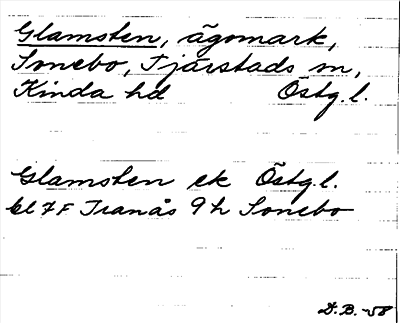 Glamsten, ägomark,
Sonebo, Tjärstads sn,
Kinda hd Östg.l.
Glamsten ek Östg.l.
bl 7 F Tranås 9 h Sonebo
D.B. -58